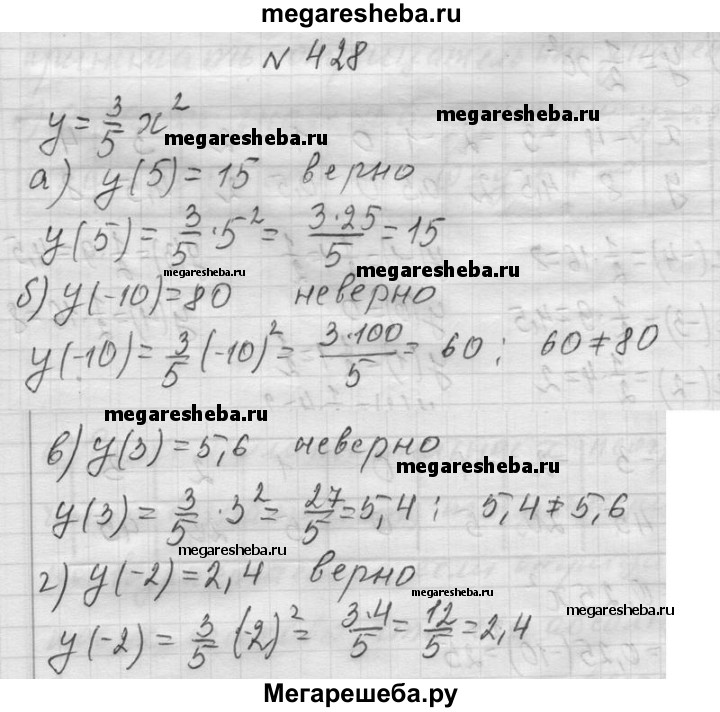 megaresheba.ru
№ 428
y = 3/5 x²
megaresheba.ru
megaresheba.ru
а) y(5) = 15 верно
y(5) = 3/5 · 5² = 3·25/5 = 15
megaresheba.ru
megaresheba.ru
б) y(-10) = 80 неверно
y(-10) = 3/5 (-10)² = 3·100/5 = 60 ; 60 ≠ 80
megaresheba.ru
в) y(3) = 5,6 неверно
megaresheba.ru
y(3) = 3/5 · 3² = 27/5 = 5,4 ; 5,4 ≠ 5,6
megaresheba.ru
г) y(-2) = 2,4 верно
megaresheba.ru
megaresheba.ru
y(-2) = 3/5 (-2)² = 3·4/5 = 12/5 = 2,4
Мегарешеба.ру